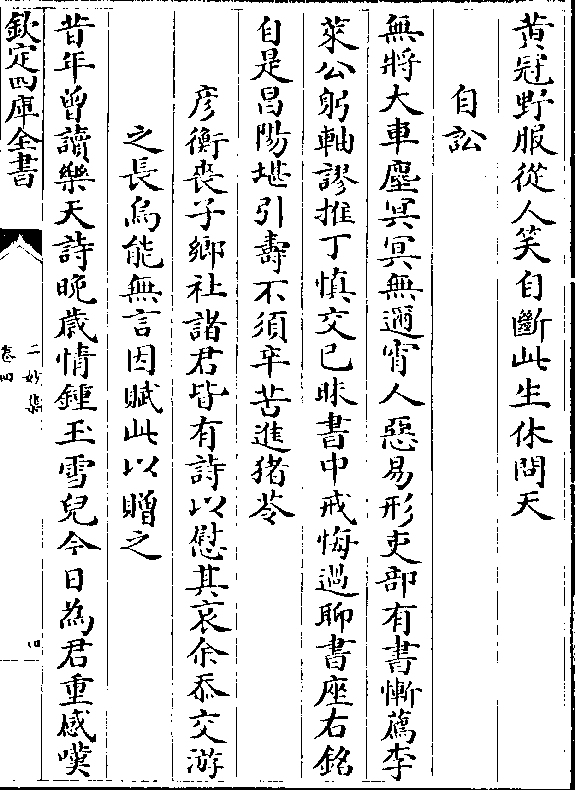 黄冠野服從人笑自斷此生休問天
自訟
無將大車塵冥冥無邇宵人惡易形吏部有書慚薦李
萊公躬軸謬推丁慎交已昧書中戒悔過聊書座右銘
自是昌陽堪引壽不須辛苦進猪苓
彦衡喪子鄉社諸君皆有詩以慰其哀余忝交游
之長烏能無言因賦此以贈之
昔年曾讀樂天詩晩歳情鍾玉雪兒今日為君重感嘆
欽定四庫全書
二妙集
卷四
四